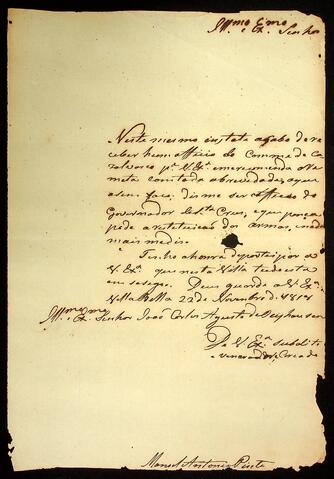 Ill.mo e Ex.mo Senhor
Neste mesmo instate acabo de re
ceber hum officio do Comm.e de Ca
p.a V. Ex.a
meto com toda a brevidade, a qual
diz me ser officio do
Governador de S.ta Cruz, e que
pede a restetuicaõ das armas, e nada
mais mediz.
Tenho a honra de participar a
V. Ex.a que nesta Villa tudo esta
em socego. Deus guarde a V. Ex.a
Villa Bella 22 de Novembro de 1818
Ill.mo e Ex.mo Senhor Joaõ Carlos Augusto de Oeynhausen
De V. Ex.a subdito
e venerador, Creado
Manoel Antonio Pinto